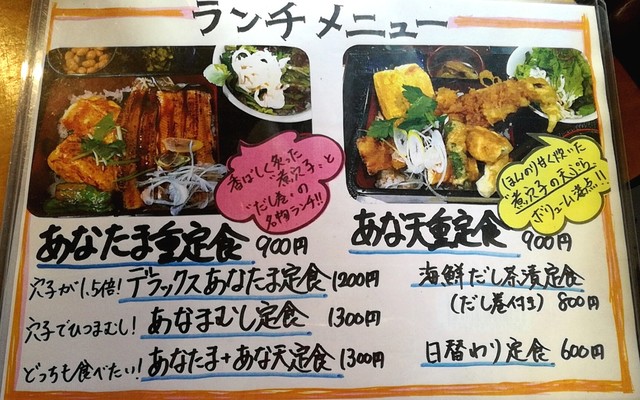 ランチメニュー
香ばしく炙った
"煮穴子"と
"だし巻"の
名物ランチ!!
ほんのり甘く炊いた
"煮穴子の天ぷら"
ボリューム満点!!
あなたま重定食 900円
あな天重定食 900円
穴子が1.5倍! デラックスあなたま定食 1200円
穴子でひつまむし! あなまむし定食 1300円
どっちも食べたい! あなたま+あな天定食 1300円
海鮮だし茶漬定食
(だし巻付き) 800円
日替わり定食 600円